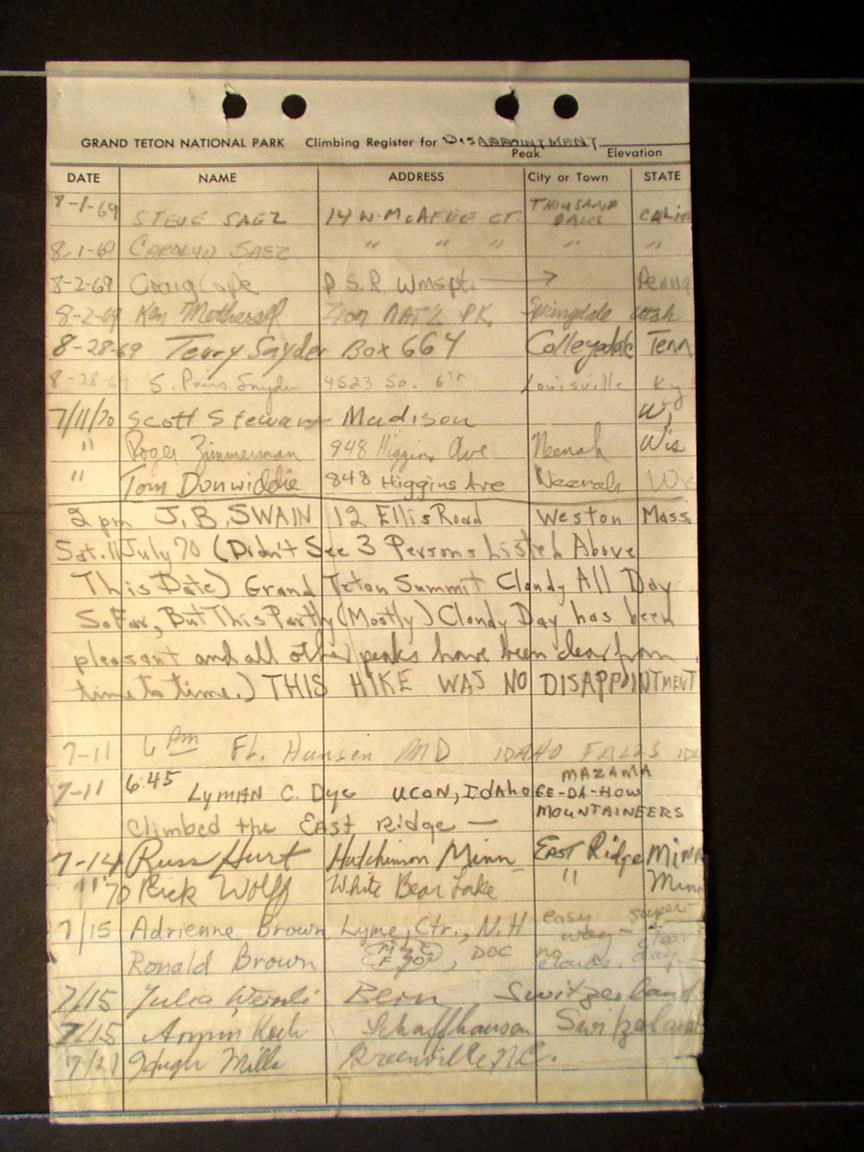 GRAND TETON NATIONAL PARK Climbing Register for DISAPPOINTMENT
Peak Elevation
DATE NAME ADDRESS City or Town STATE
8-1-69 STEVE SAEZ 14 W. McAFEE CT. THOUSAND OAKS CALIF
8-1-69 CAROLYN SAEZ " " " " "
8-2-69 Craig Cope R.S.R Wmspt. → Penna
8-2-69 Ken Mothersel ZION NAT'L PK. Springdale Utah
8-28-69 Terry Snyder Box 664 Collegedale Tenn
8-28-69 S. Snyder 4523 So. 6th Louisville Ky
7/11/70 Scott Stewart Madison Wi
" Roger Zimmerman 948 Higgins Ave Neenah Wis
" Tom Dunwiddie 848 Higgins Ave Neenah Wi
2 pm J.B. SWAIN 12 Ellis Road Weston Mass
Sat. 11 July 70 (Didn't See 3 Persons Listed Above
This Date) Grand Teton Summit Cloudy All Day
So Far, But This Partly (Mostly) Cloudy Day has been
pleasant and all other peaks have been clear from
time to time.) THIS HIKE WAS NO DISAPPOINTMENT
7-11 6 pm Hansen MD IDAHO FALLS IDA
7-11 6:45 LYMAN C. Dye UCON, IdAho MAZAMA
EE-DA-HOW
MOUNTAINEERS
Climbed the East Ridge —
7-14 Russ Hurt Hutchinson Minn East Ridge Minn
" 70 Rick Wolff White Bear Lake " Minn
7/15 Adrienne Brown Lyme Ctr., N.H easy way - super
Ronald Brown , DOC no clouds. day
7/15 Julia Bern Switzerland
7/15 Armin Koch Schaffhausen Switzerland
7/21 Hugh Mills Greenville N.C.